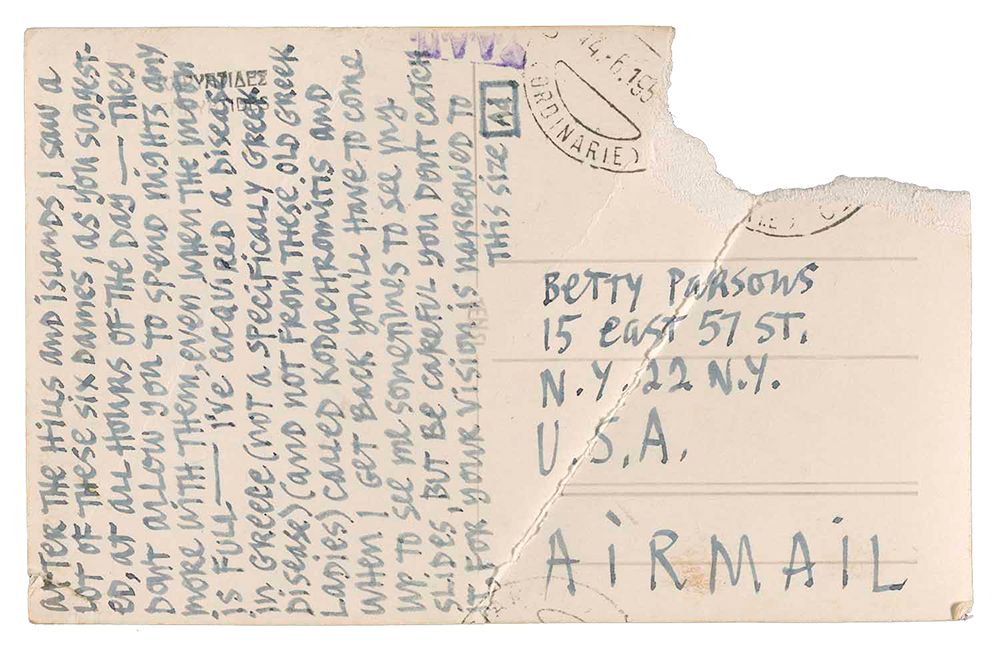 AFTER THE HILLS AND ISLANDS I SAW A
LOT OF THESE SIX DAMES, AS YOU SUGGEST-
ED, AT ALL HOURS OF THE DAY — THEY
DONT ALLOW YOU TO SPEND NIGHTS ANY
MORE WITH THEM, EVEN WHEN THE MOON
IS FULL — I'VE ACQUIRED A DISEASE
IN GREECE (NOT A SPECIFICALLY GREEK
DISEASE) (AND NOT FROM THESE OLD GREEK
LADIES) CALLED KODACHROMITIS AND
WHEN I GET BACK YOU'LL HAVE TO COME
UP TO SEE ME SOMETIMES TO SEE MY
SLIDES, BUT BE CAREFUL YOU DONT CATCH
IT FOR YOUR VISION IS NARROWED TO
THIS SIZE
14.-6.195
(ORDINARIE)
BETTY PARSONS
15 EAST 57 ST.
N.Y. 22 N.Y.
U.S.A.
AIRMAIL